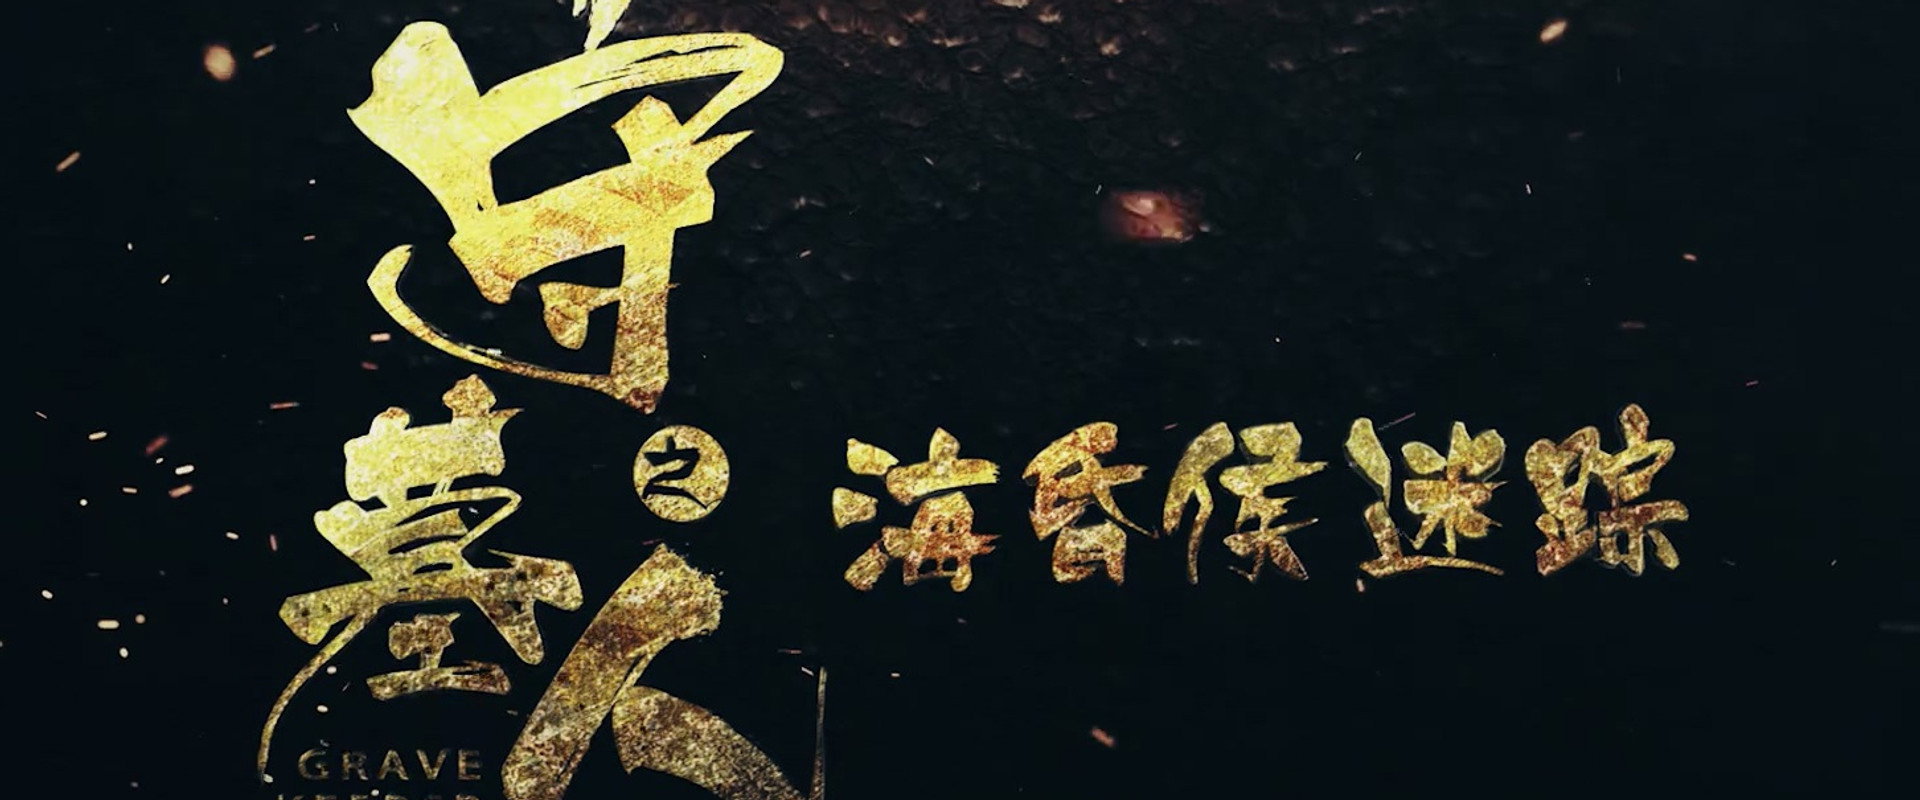 守墓人
之
海昏侯迷踪
GRAVE
KEEPER